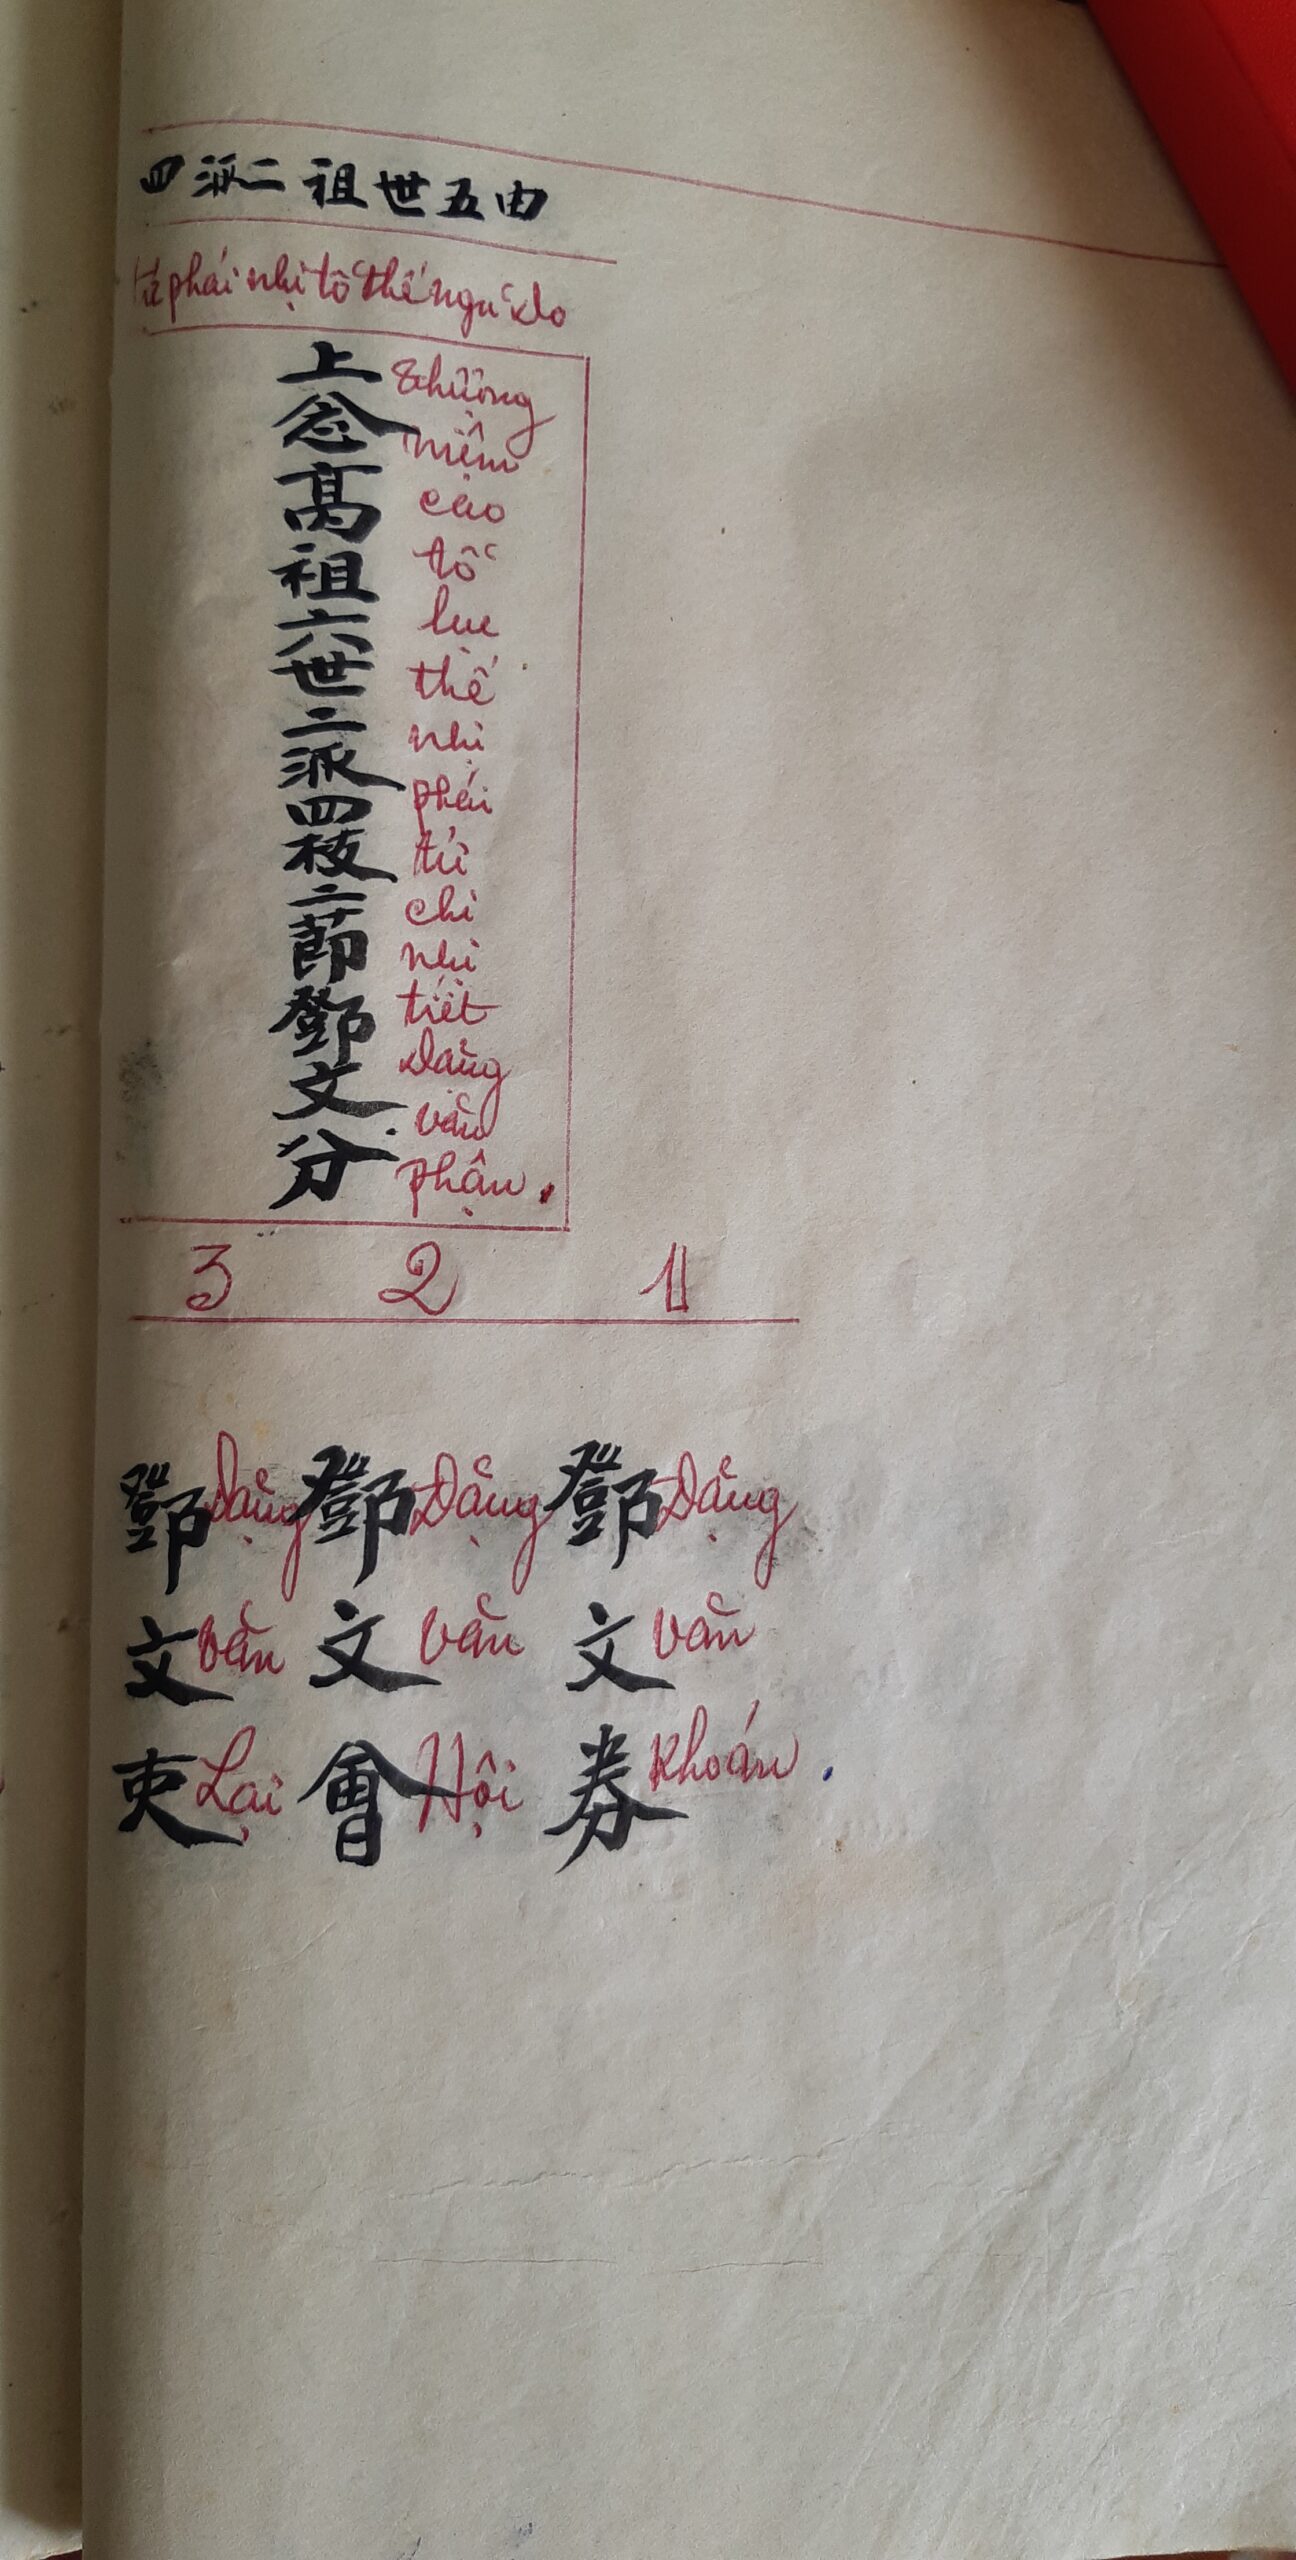 四派二祖世五由
tứ phái nhị tổ thế ngũ do
上念高祖六世二派四枝二節鄧文分
Thượng niệm cao tổ lục thế nhị phái tứ chi nhị tiết Đặng văn phận.
3 2 1
鄧文券
Đặng văn Khoán.
鄧文會
Đặng văn Hội
鄧文吏
Đặng văn Lại